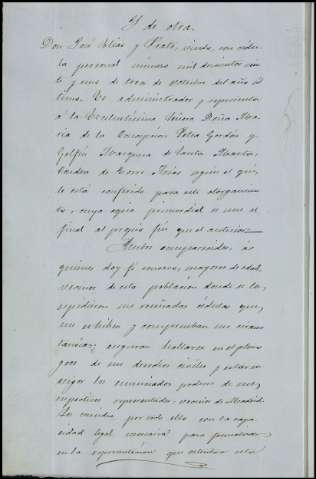 Y de otra.
Don José Elías y Prats, viudo, con cédu
la personal número mil doscientos vein
te y uno de trece de Octubre del año úl
timo. Es administrador y representa
á la Excelentísima Señora Doña Ma
ría de la Concepción
Golfín Marquesa de Santa Marta,
Condesa de Torre Arias según el que
le está conferido para este otorgamien
to, cuya copia primordial se une al
final al propio fin que el anterior.
Ambos comparecidos, á
quienes doy fé conocer, mayores de edad,
vecinos de esta población donde se les
expidieron sus reseñadas cédulas que
me exhiben y comprueban sus circuns
tancias; aseguran hallarse en el pleno
goce de sus derechos civiles y
los enunciados poderes de sus
respectivos representados, vecinos de Madrid.
Les considero por todo ello con la capa
cidad legal necesaria para
en la representación que ostentan esta